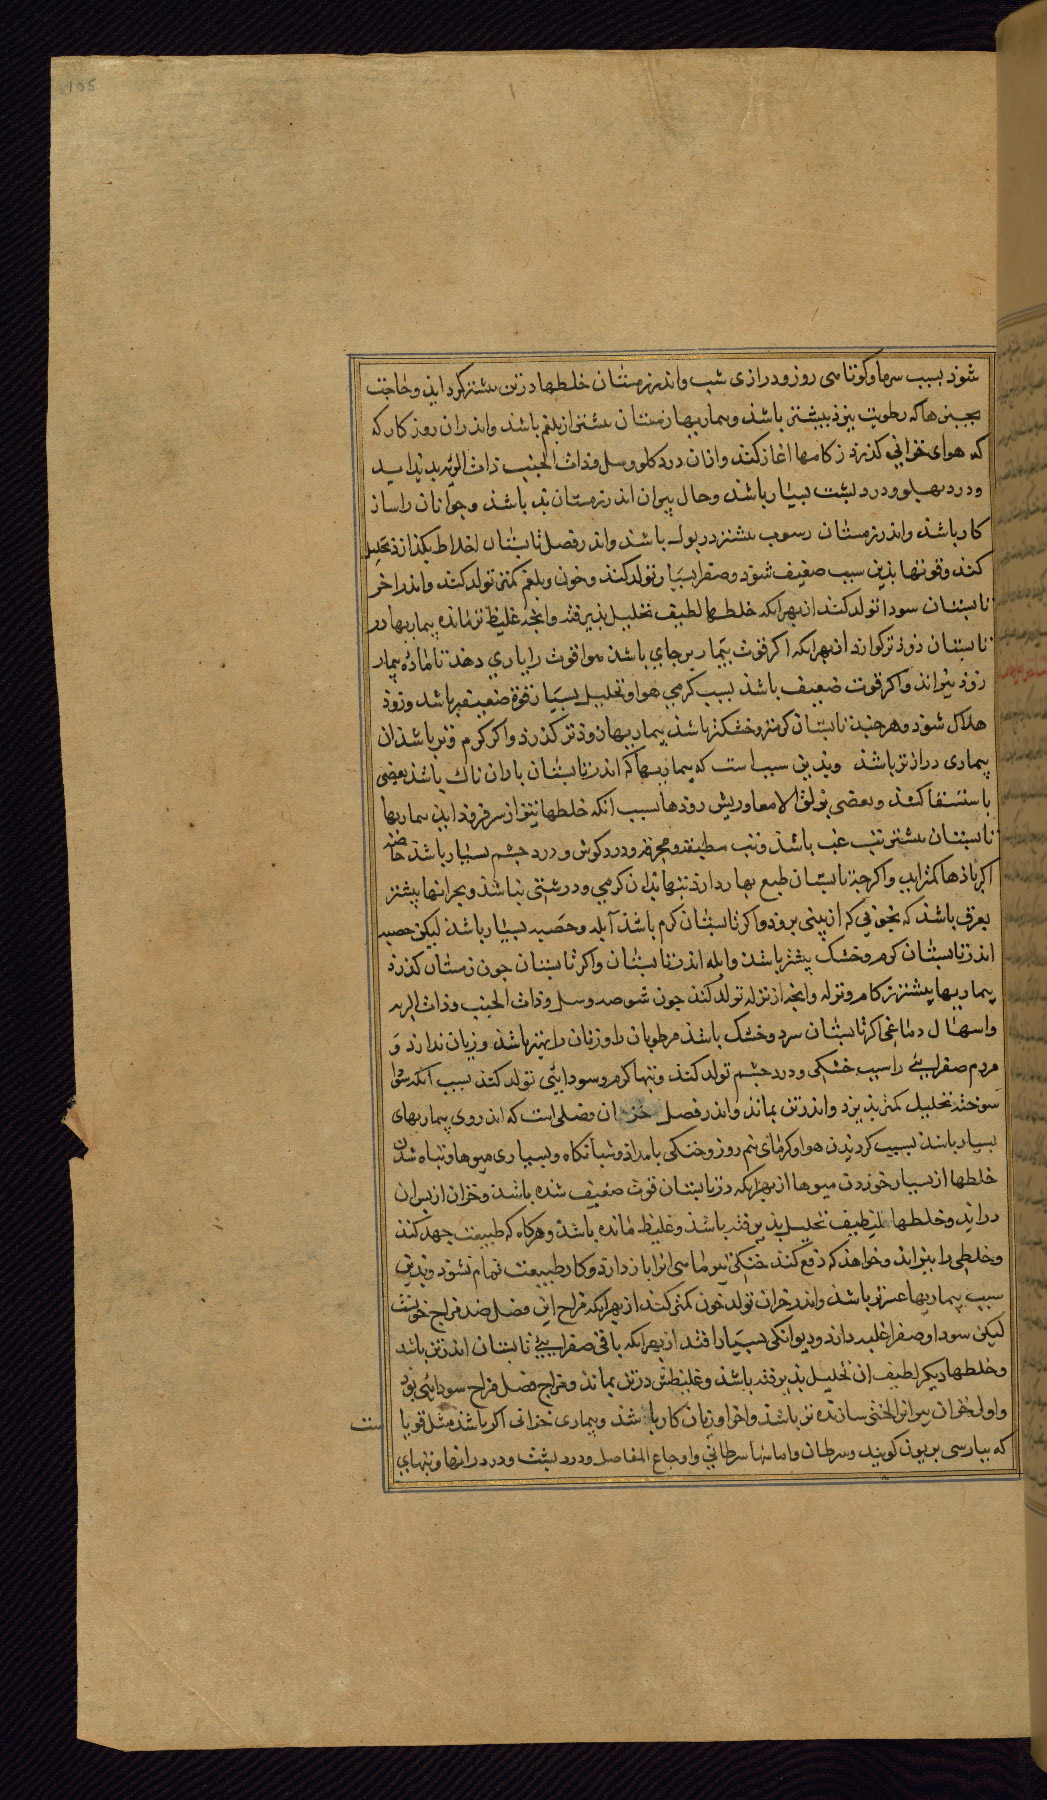 105
شوذ بسبب سرما و کوتاهی روز و درازی شب و اندر زمستان خلطها در تن بیشتر کرد ایذ و حاجت
بچیزها که رطوبت ببرذ بیشتر باشذ و بیماریهای زمستان بیشتر از بلغم باشذ و اندران روزکار که
که هوای خزانی کذرذ زکامها اغاز کنند و ازان درد کلو و سل و ذات الجنب ذات الریه بدیذ ایذ
و درد بهلو و درد بشت بسیار باشذ و حال بیران اندر زمستان بذ باشذ و جوانان را ساز
کار باشذ و اندر زمستان رسوب بیشتر در بول باشذ و اندر فصل تابستان اخلاط بکذازد تحلیل
کنذ و قوتها بذین سبب ضعیف شوذ و صفرا بسیار تولد کنذ و خون و بلغم کمتر تولد کنند و اندر اخر
تابستان سودا تولد کنذ از بهر انکه خلطهای لطیف تحلیل بذیرفته و انجه غلیظ تر مانده بیماریها در
تابستان زوذتر کوارد از بهر انکه اکر قوت بیمار بر جای باشذ هوا قوت را یاری دهذ تا ماده بیمار
زوذ بیزاند و اکر قوت ضعیف باشذ بسبب کرمی هوا و تحلیل بسیار قوة ضعیفتر باشد و زوذ
هلاک شوذ و هر جند تابستان کرمتر و خشکتر باشذ بیماریها زوذتر کذرذ و اکر کرم و تر باشذ ان
بیماری درازتر باشذ و بذین سبب است که بیماریها که اندر تابستان باران ناک باشذ بعضی
باستسقا کشذ و بعضی بزلق الامعا و ریش روذها بسبب انکه خلطها نیز از سر فروذ ایذ بیماریها
تابستان بیشتر تب غب باشذ و تب مطبقه و محرقه و درد کوش و درد جشم بسیار باشذ خاصه
اکر باذها کمتر ایذ و اکر جه تابستان طبع بهار دارد تبها بدان کرمی و درشتی نباشذ و بحرانها بیشتر
بعرق باشذ که بخونی که از بینی بروذ و اکر تابستان کرم باشذ آبله و حصبه بسیار باشذ لیکن حصبه
اندر تابستان کرم و خشک بیشتر باشذ و ابله اندر تابستان و اکر تابستان جون زمستان کذرذ
بیماریها بیشتر زکام و نزله و انجه از نزله تولد کند جون شوصه و سل و ذات الجنب و ذات الریه
و اسهال دماغی اکر تابستان سرد و خشک باشذ مرطوبان را و زنان را بهتر باشذ و زیان ندارد و
مردم صفرایی را سبب خشکی و درد جشم تولد کند و تبها کرم و سودایی تولد کنذ بسبب انکه صفرا
سوخته تحلیل کمتر بذیرد و اندر تن بماند و اندر فصل خزان فصلی است که اندروی بیماریهای
بسیار باشذ بسبب کردیدن هوا و کرمای نیم روز و خنکی بامداذ و شبانکاه و بسیاری میوها و تباه شدن
خلطها از بسیار خوردن میوها از بهر انکه در تابستان قوت ضعیف شده باشذ و خزان از بس ان
دراید و خلطهای لطیف تحلیل بذیرفته باشذ و غلیظ مانده باشذ و هرکاه که طبیعت جهد کنذ
و خلطی را بیزاند و خواهذ که دفع کنذ خنکی انرا باز دارد و کار طبیعت تمام نشوذ و بذین
سبب بیماریها عسرتر باشذ و اندر خزان تولد خون کمتر کنذ از بهر انکه مزاج این فصل ضد مزاج خونست
لیکن سودا و صفرا غلبه دارد و دیوانکی بسیار افتد از بهر انکه باقی صفرایی تابستان اندر تن باشد
و خلطها دیکر لطیف ان تحلیل بذیرفته باشذ و غلیظش در تن بماند و مزاج فصل مزاج سودایی بوذ
و اول خزان بیرانرا لختی سازنده تر باشذ و اخر او زیان کار باشذ و بیماری خزانی اکر باشذ مثل قوبا
که ببارسی بریون کویند و سرطان و اماسها سرطانی و اوجاع المفاصل و درد بشت و درد رانها و تبهای
ست